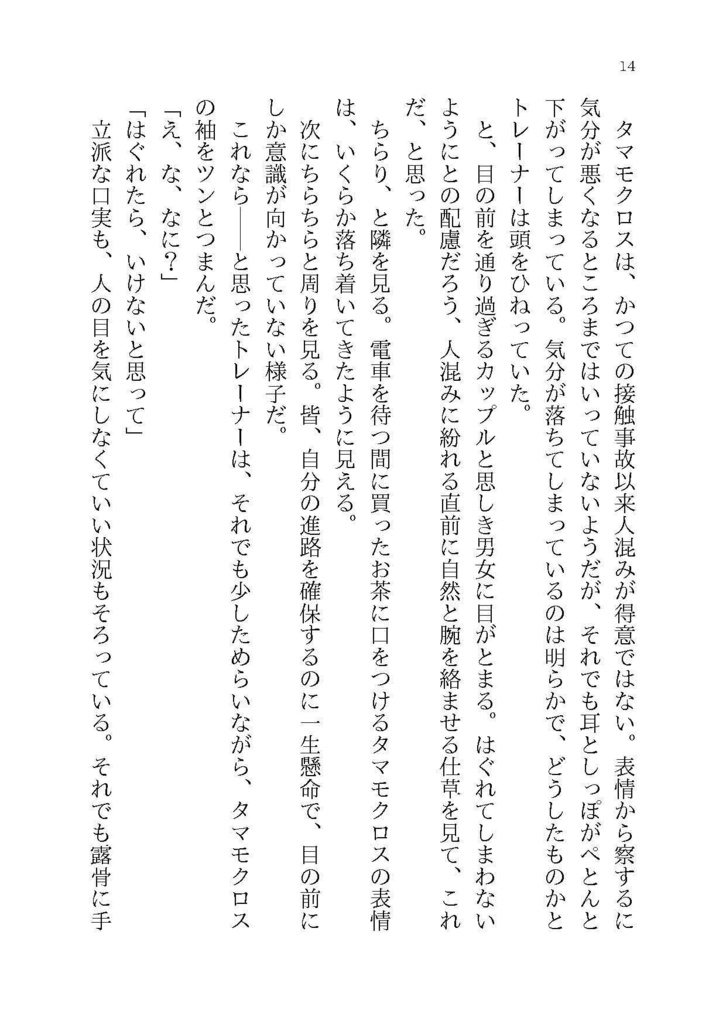 14
タマモクロスは、かつての接触事故以来人混みが得意ではない。表情から察するに
気分が悪くなるところまではいっていないようだが、それでも耳としっぽがぺとんと
下がってしまっている。気分が落ちてしまっているのは明らかで、どうしたものかと
トレーナーは頭をひねっていた。
と、目の前を通り過ぎるカップルと思しき男女に目がとまる。はぐれてしまわない
ようにとの配慮だろう、人混みに紛れる直前に自然と腕を絡ませる仕草を見て、これ
だ、と思った。
ちらり、と隣を見る。電車を待つ間に買ったお茶に口をつけるタマモクロスの表情
は、いくらか落ち着いてきたように見える。
次にちらちらと周りを見る。皆、自分の進路を確保するのに一生懸命で、目の前に
しか意識が向かっていない様子だ。
これなら――と思ったトレーナーは、それでも少しためらいながら、タマモクロス
の袖をツンとつまんだ。
「え、な、なに？」
「はぐれたら、いけないと思って」
立派な口実も、人の目を気にしなくていい状況もそろっている。それでも露骨に手